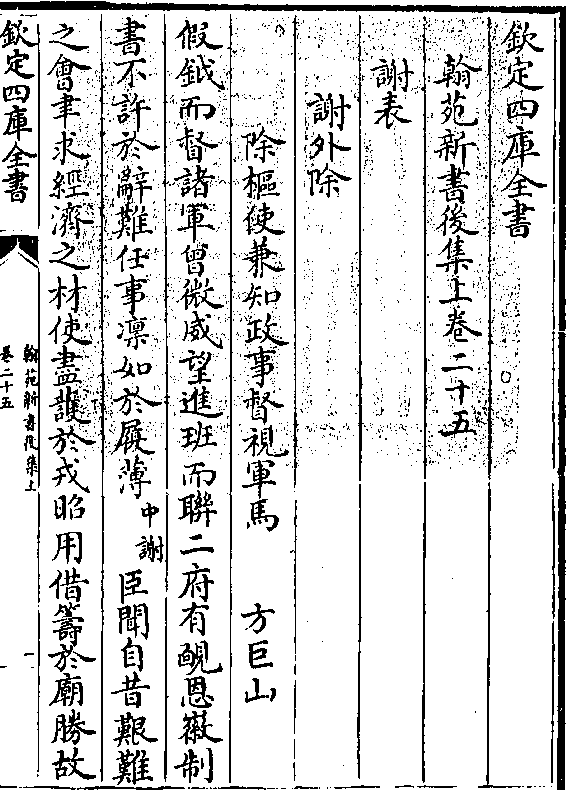 欽定四庫全書
翰苑新書後集上卷二十五
謝表
謝外除
除樞使兼知政事督視軍馬　方巨山
假鉞而督諸軍曾微威望進班而聯二府有靦恩徽制
書不許於辭難任事凛如於履薄中謝臣聞自昔艱難
之會聿求經濟之材使盡護於戎昭用借籌於廟勝故
欽定四庫全書
翰苑新書後集上
卷二十五
一